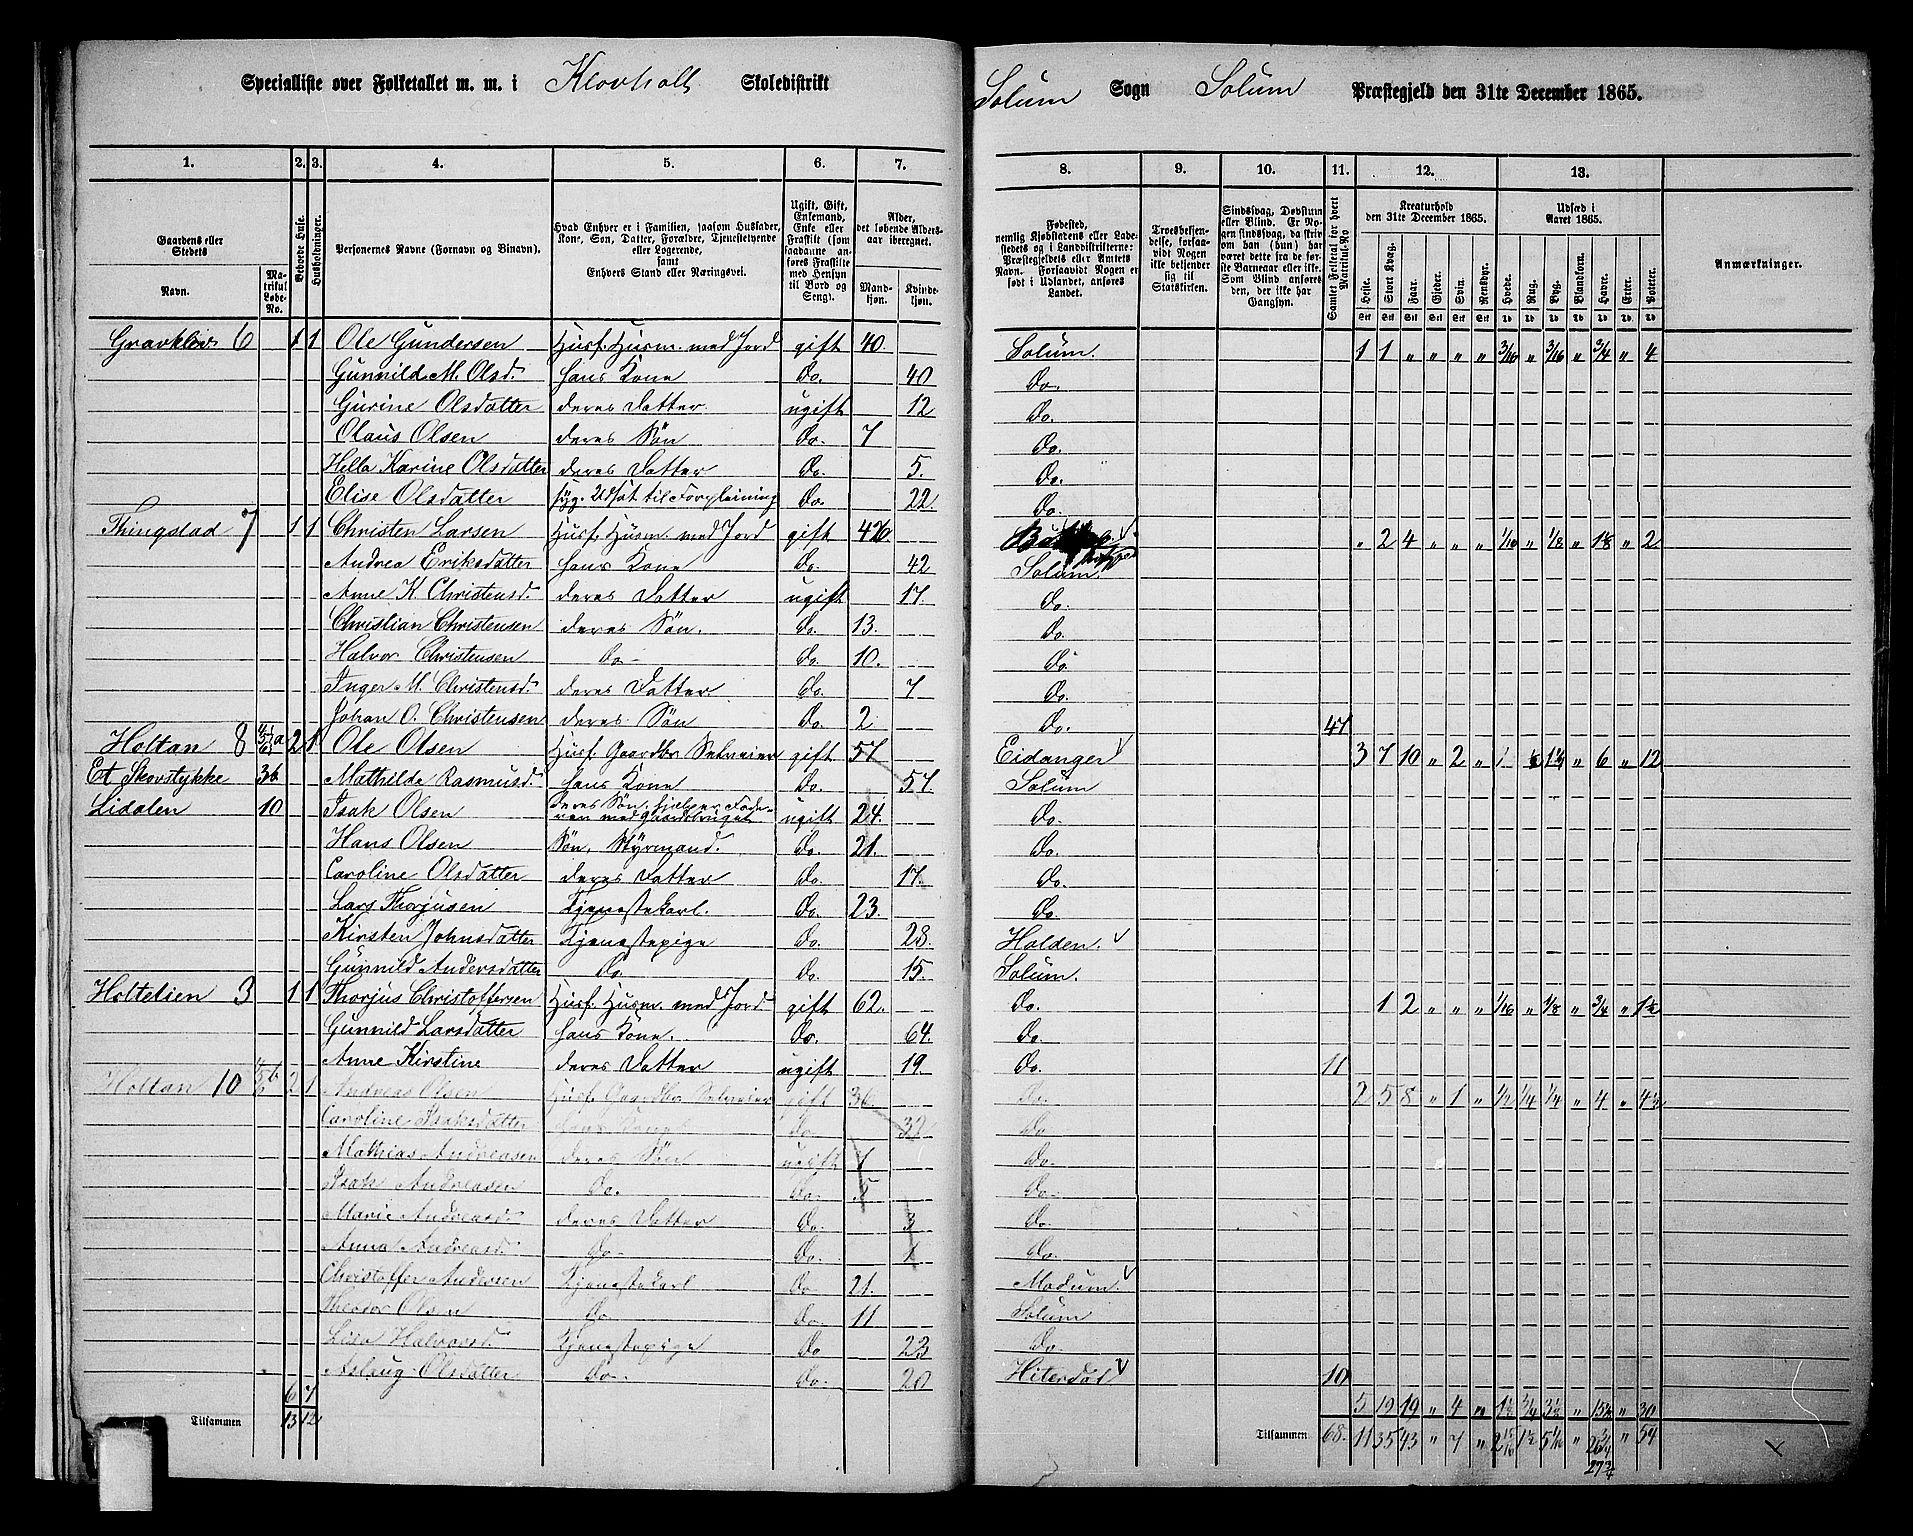 Specialliste over Folketallet m. m. i Klovholt Skoledistrikt Solum Sogn Solum Præstegjeld den 31te December 1865.
1. 2. 3. 4. 5. 6. 7. 8. 9. 10. 11. 12. 13.
Gaardens eller Stedets Navn. Matrikul Løbe-No. Beboede Huse. Husholdninger. Personernes Navne (Fornavn og Binavn).
Hvad Enhver er i Familien, saasom Husfader, Kone, Søn, Datter, Forældre, Tjenestetyende eller Logerende, samt Enhvers Stand eller Næringsvei.
Ugift, Gift, Enkemand, Enke eller Fraskilt (som saadanne anføres Fraskilte med Hensyn til Bord og Seng).
Alder, det løbende Aldersaar iberegnet. Mandkjøn. Kvindekjøn.
Fødested, nemlig Kjøbstadens eller Ladestedets og i Landdistrikterne: Præstegjeldets eller Amtets Navn. Forsaavidt Nogen er født i Udlandet, anføres Landet.
Troesbekjendelse, forsaavidt Nogen ikke bekjender sig til Statskirken.
Samlet Folketal for hvert Matrikul-No
Kreaturhold den 31te December 1865. Udsæd i Aaret 1865. Anmærkninger.
Heste. Stort Kvæg. Faar. Gjeder. Svin. Rensdyr. Hvede. Rug. Byg. Blandkorn. Havre. Erter. Poteter.
Gravklöv 6 1 1 Ole Gundersen Husf. Husm. med Jord gift 40. Solum. 1 1 " " " " 3/16 " 3/16 " 3/4 " 4
Gunnild M. Olsd. hans Kone do. 40 do.
Gurine Olsdatter deres Datter. ugift 12 do.
Olaus Olsen deres Søn do. 7 do.
Hella Karine Olsdatter deres Datter do. 5. do.
Elise Olsdatter syg. Udsat til Forpleining do. 22. do.
Thingstad 7 1 1 Christen Larsen Husf. Husm. med Jord gift " 2 4 " " " 1/10 " 1/8 " " 2
Andrea Eriksdatter hans Kone do. 42 Solum.
Anne K Christensd. deres Datter ugift 17. do.
Christian Christensen deres Søn. do. 13. do.
Halvor Christensen do do. 10. do.
Inger M. Christensd. deres Datter do. 7 do.
Johan O. Christensen deres Søn do. 2 do. 47
Holtan 8 2 1 Ole Olsen Husf. Gaardbr. Selveier gift 57 Eidanger 3 7 10 " 2 " 1 " 6 " 12
Et Skovstykke 36 Mathilde Rasmusd. hans Kone do. 57. Solum
Lidalen 10 Isak Olsen deres Søn, hjelper Faderen med Gaardsbruget ugift 24. do.
Hans Olsen Søn, Styrmand. do 21. do.
Caroline Olsdatter deres Datter do. 17. do.
Lars Thorjusen Tjenestekarl. do. 23. do.
Kirsten Johnsdatter Tjenestepige do. 28. Holden.
Gunnild Andersdatter do. do. 15. Solum.
Holtelien 3 1 1 Thorjus Christoffersen Husf. Husm. med Jord gift 62. do. 1 2 " " " 1/16 " 1/8 " 3/4 " 1½
Gunnild Larsdatter hans Kone. do. 64. do.
Anne Kirstine deres Datter ugift 19. do. 11
Holtan 10 2 1 Andreas Olsen Husf. Gaardbr. Selveier gift 36. do. 2 5 8 " 1 " 1/2 1/4 1/4 " 4 " 4½
Caroline Isaksdatter hans Kone do. 32. do.
Mathias Andreasen deres Søn ugift do.
Isak Andreasen do. do. 5 do.
Marie Andreasd. deres Datter do. 3 do.
Anna Andreasd. do do. 1 do.
Christoffer Andersen Tjenestekarl do 21. Modum.
Theodor Olsen do do. 11 Solum
Lisa Halvorsd. Tjenestepige do 23 do.
Aslaug Olsdatter do. do. 20 Hiterdal 10
6 7 5 19 19 " 4 " 1½ 3/4 3½ " " 30
Tilsammen 13 12 Tilsammen 68. 11 35 43 " 7 " " " 54
27¾